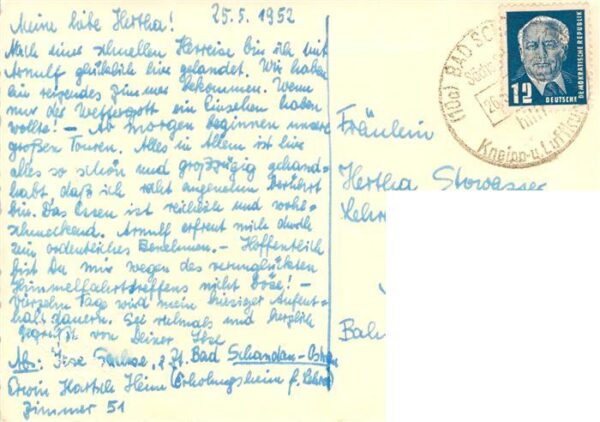 Meine liebe Hertha! 25.5.1952
Nach einer schnellen Herreise bin ich mit
Arnulf glücklich hier gelandet. Wir haben
ein reizendes Zimmer bekommen. Wenn
nur der Wettergott ein Einsehen haben
wollte! – Ab morgen beginnen unsere
großen Touren. Alles in Allem ist hier
alles so schön und großzügig gehand-
habt daß ich sehr angenehm berührt
bin. Das Essen ist reichlich und wohl-
schmeckend. Arnulf erfreut mich durch
sein ordentliches Benehmen. – Hoffentlich
bist Du mir wegen des verunglückten
Himmelfahrtstreffens nicht böse! –
Vierzehn Tage wird mein hiesiger Aufent-
halt dauern. Sei vielmals und herzlich
gegrüßt von Deiner Ilse
Abs: Ilse z. Zt. Bad Schandau-Ostrau
Erwin Hartsch Heim Erholungsheim f. Lehrer
Zimmer 51
Fräulein
Hertha Stowasser
Lehr
Bah
12 DEUTSCHE DEMOKRATISCHE REPUBLIK
(10a) BAD SC
Kneipp- u. Luftku